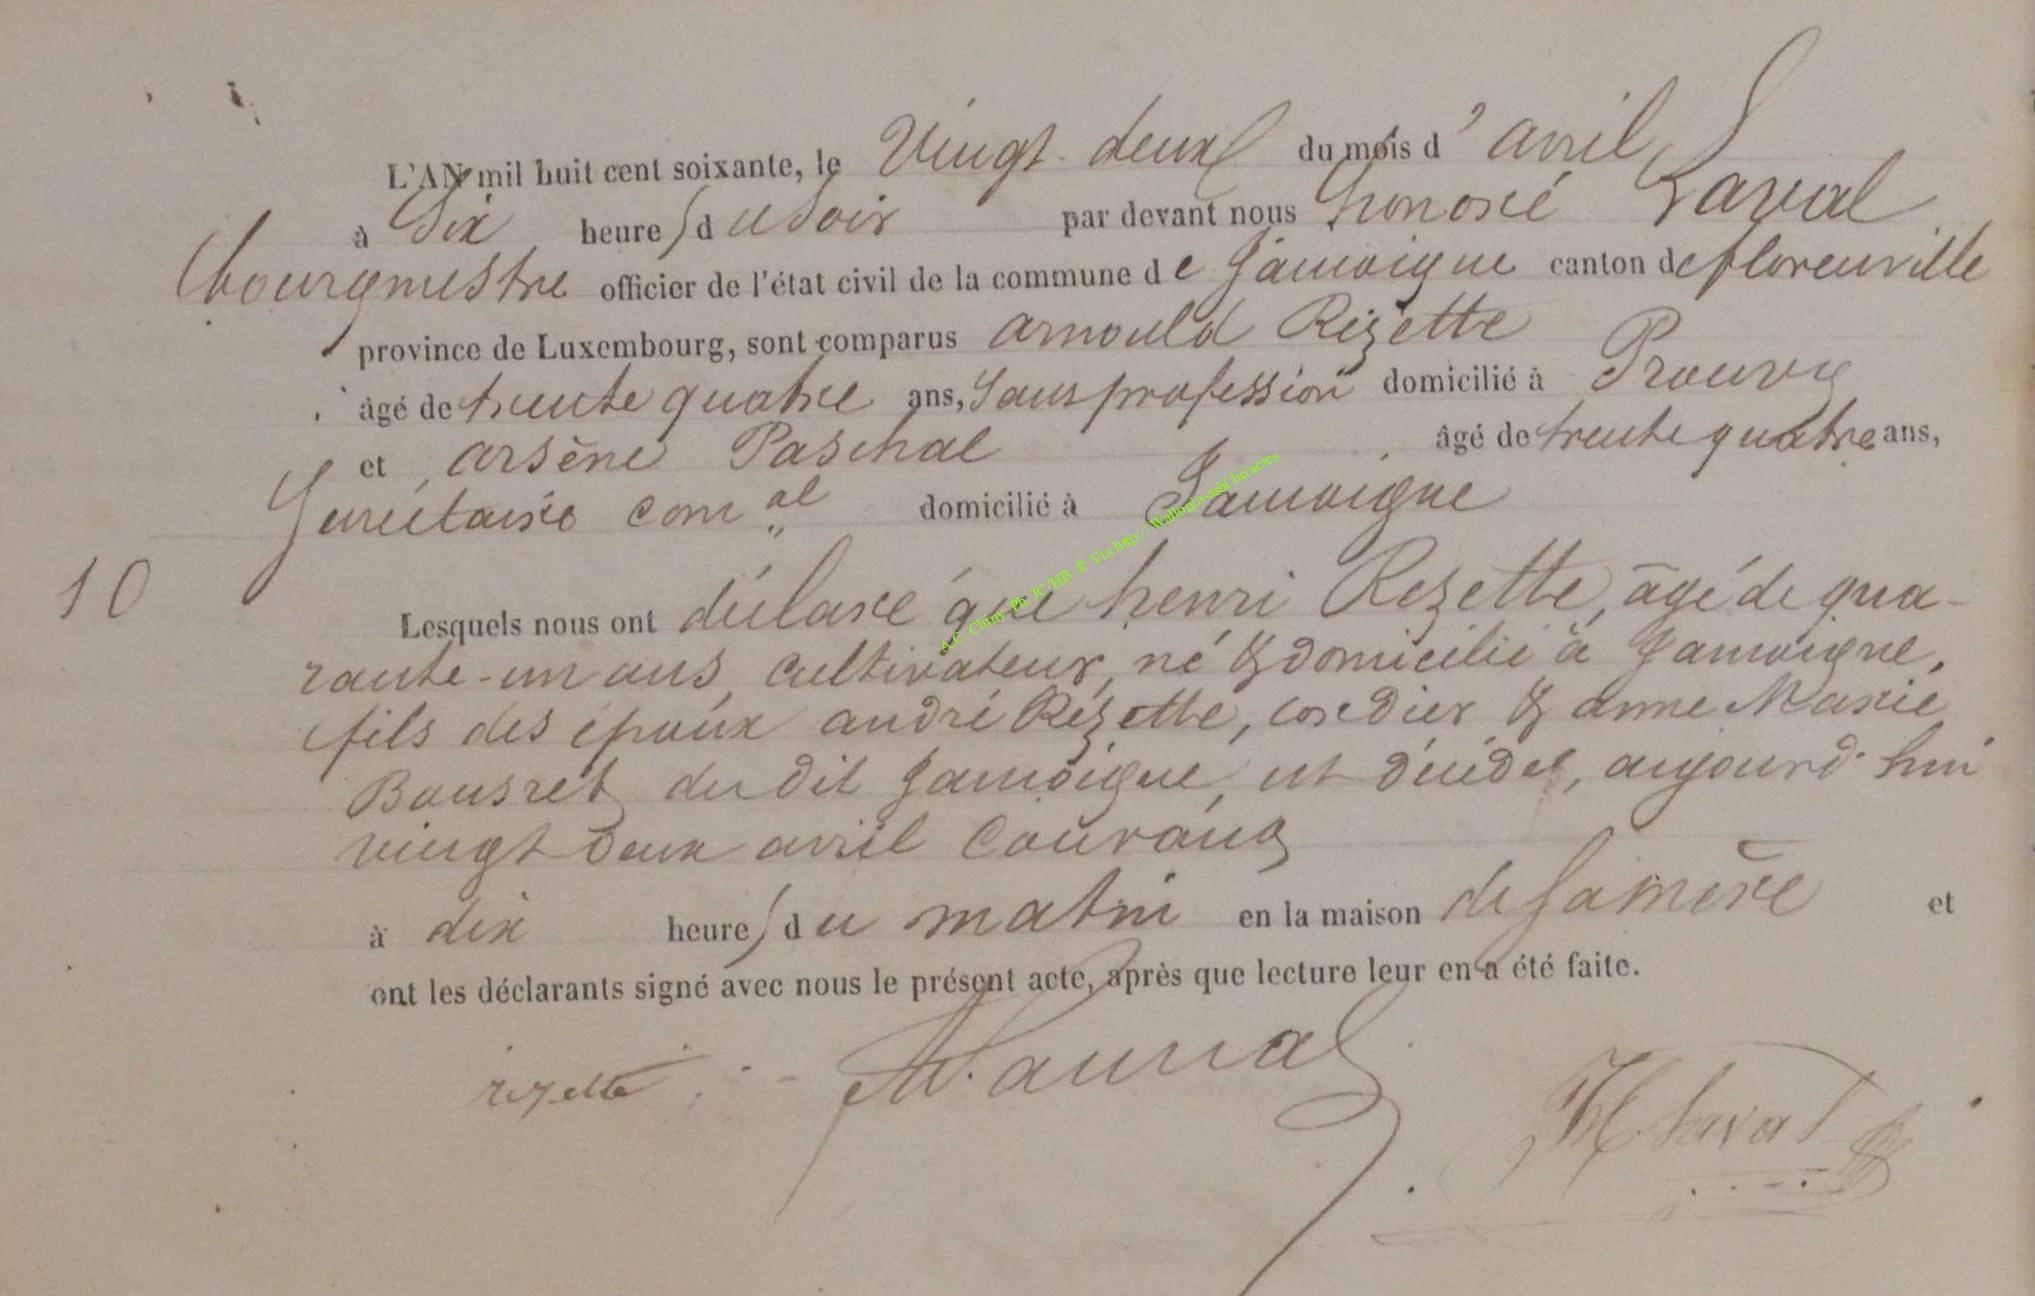 L'AN mil huit cent soixante, le Vingt deux du mois d'avril
à Six heures du Soir par devant nous honoré Laval
bourgmestre officier de l'état civil de la commune de Jamoigne canton de florenville
province de Luxembourg, sont comparus arnould Rizette
âgé de trente quatre ans, Sans profession domicilié à Prouvy
et arsène Paschal âgé de trente quatre ans,
Secrétaire com al domicilié à Jamoigne
10
Lesquels nous ont déclaré que henri Rezette, âgé de qua-
rante-un ans, cultivateur, né & domicilié à Jamoigne,
fils des époux andré Rézette, cordier & anne Marie
du dit Jamoigne, est décédé, aujourd'hui
vingt deux avril Courant
à dix heures du matin en la maison de Sa mère et
ont les déclarants signé avec nous le présent acte, après que lecture leur en a été faite.
rezette H. Laval
A.C. Chiny Ph JC/HB ® Via http://Wallonia-asbl.be/actes